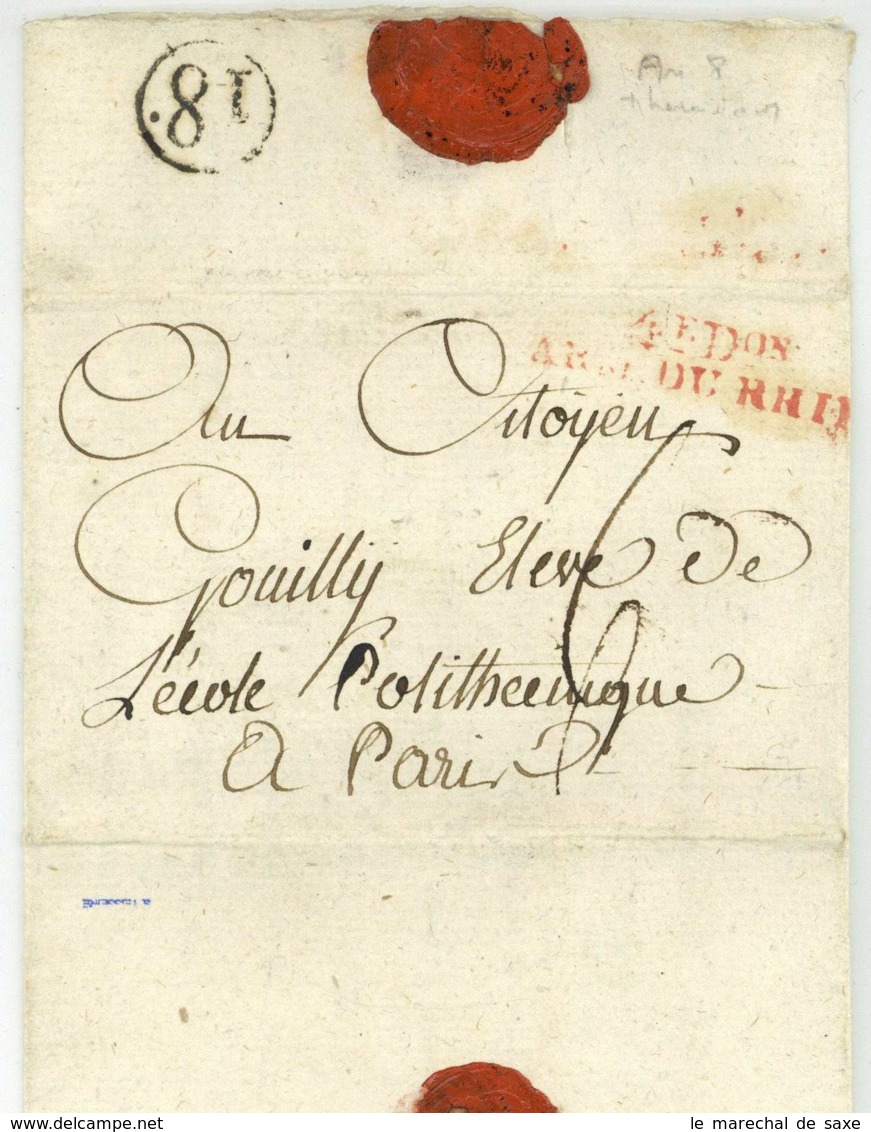 18.
An 8
thermidor
4E DON
ARM. DU RHIN
Au Citoyen
Gouilly Eleve de
L'école Polithecnique
a Paris
6
le marechal de saxe
www.delcampe.net